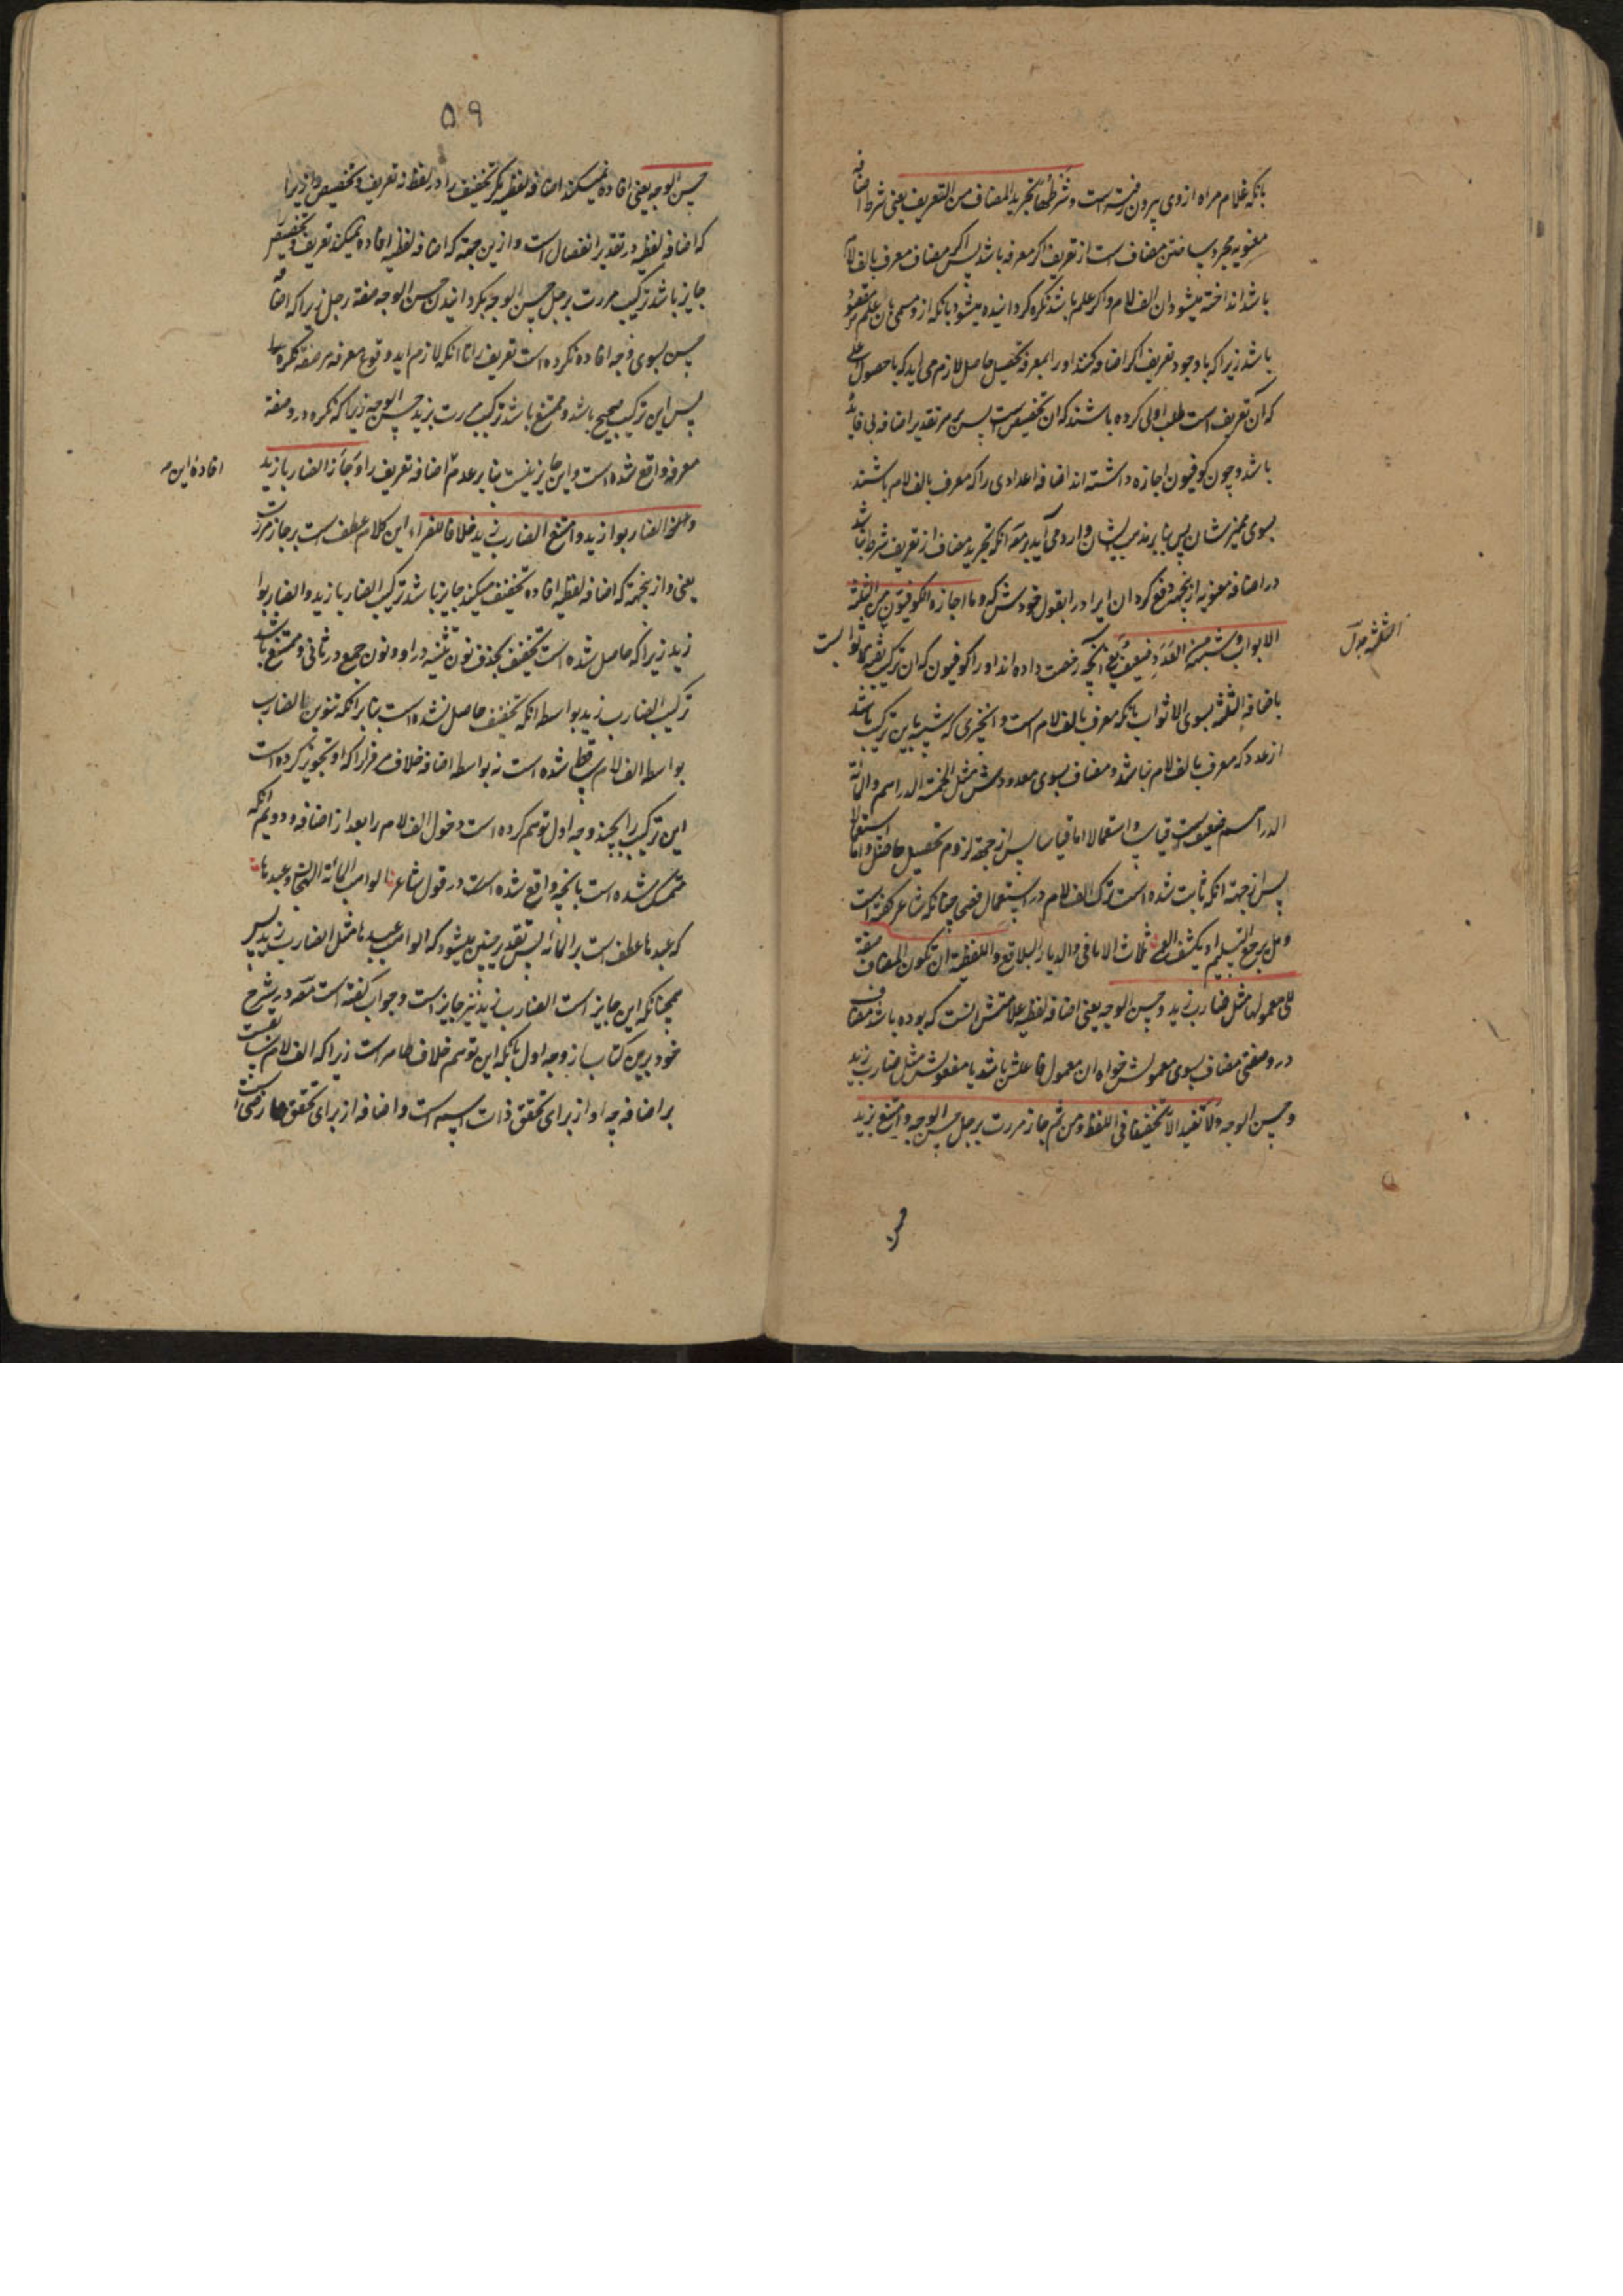 بانکه غلام مراه از وی بیرون رفته است وشرطها تجرید المضاف من التعریف یعنی شرط اضافه
معنویه مجرد ساختن مضاف است از تعریف اگر معرفه باشد پس اگر مضاف معرف بالف لام
باشد انداخته میشود ان الف لام و اگر علم باشد نکره گردانیده میشود بانکه از و مسمی بان علم مقصود
باشد زیرا که باوجود تعریف اگر اضافه کنند او را بمعرفه تحصیل حاصل لازم می اید که با حصول اعلی
که ان تعریف است طلب ادنی کرده باشند که ان تخصیص است پس بهر تقدیر اضافه بی فایده
باشد و چون کوفیون اجازه داشته اند اضافه اعدادی را که معرف بالف لام باشند
بسوی ممیزشان پس بنابر مذهب ایشان وارد می آید بر مص انکه تجرید مضاف از تعریف شرط نباشد
در اضافه معنویه ازینجهة دفع کرد ان ایراد را بقول خودش که وما اجازه الکوفیون من الثلثة
الاثواب وشبهه من العدد ضعیف یعنی آنچه رخصت داده اند او را کوفیون که ان ترکیب ثلثة اثواب است
الثلثة بدل
باضافه الثلثة بسوی الاثواب بانکه معرف بالف لام است و انچیزی که شبیه باین ترکیب باشد
از عدد که معرف بالف لام باشد و مضاف بسوی معدودش مثل الخمسة الدراهم والمائة
الدراهم ضعیف است قیاسا و استعمالا اما قیاسا پس از جهة لزوم تحصیل حاصل و اما استعمالا
پس از جهة انکه ثابت شده است ترک الف لام در استعمال فصحی چنانکه شاعر گفته است
وهل یرجع التسلیم او یکشف العمی ثلاث الاثافی والدیار البلاقع واللفظیة ان تکون المضاف صفة
الی معمولها مثل ضارب زید وحسن الوجه یعنی اضافه لفظیه علامتش انست که بوده باشد مضاف
درو صفتی مضاف بسوی معمولش خواه ان معمول فاعلش باشد یا مفعولش مثل ضارب زید
وحسن الوجه ولا تفید الا تخفیفا فی اللفظ ومن ثم جاز مررت برجل حسن الوجه وامتنع بزید
۵۹
حسن الوجه یعنی افاده نمیکند اضافه لفظیه مگر تخفیف را در لفظ نه تعریف و تخصیص را زیرا
که اضافه لفظیه در تقدیر انفصال است و ازین جهة که اضافه لفظیه افاده نمیکند تعریف و تخصیص
جایز باشد ترکیب مررت برجل حسن الوجه بگردانیدن حسن الوجه صفة رجل زیرا که اضافه
حسن بسوی وجه افاده نکرده است تعریف را تا انکه لازم اید وقوع معرفه مر صفة نکره را
پس این ترکیب صحیح باشد و ممتنع باشد ترکیب مررت بزید حسن الوجه زیرا که نکره درو صفة
معرفه واقع شده است و این جایز نیست بنابر عدم اضافه تعریف را وجاز الضاربا زید
افادۀ این
والضاربوا زید وامتنع الضارب زید خلافا للفراء این کلام عطف است بر جاز مررت
یعنی و ازینجهة که اضافه لفظیه افاده تخفیف میکند جایز باشد ترکیب الضاربا زید والضاربوا
زید زیرا که حاصل شده است تخفیف بحذف نون تثنیه در او و نون جمع در ثانی و ممتنع باشد
ترکیب الضارب زید بواسطه انکه تخفیف حاصل نشده است بنابر انکه تنوین الضارب
بواسطه الف لام ساقط شده است نه بواسطه اضافه خلاف مر فرا را که او تجویز کرده است
این ترکیب را بچند وجه اول توهم کرده است دخول الف لام را بعد از اضافه و دویم انکه
متمسک شده است بانچه واقع شده است در قول شاعر الواهب المائة الهجان وعبدها
که عبدها عطف است بر المائة پس تقدیر چنین میشود که الواهب عبدها مثل الضارب زید پس
همچنانکه این جایز است الضارب زید نیز جایز است و جواب گفته است مص در شرح
خود برین کتاب از وجه اول بانکه این توهم خلاف ظاهر است زیرا که الف لام سابق است
بر اضافه چه او از برای تحقق ذات اسم است و اضافه از برای تحقق عارضی است